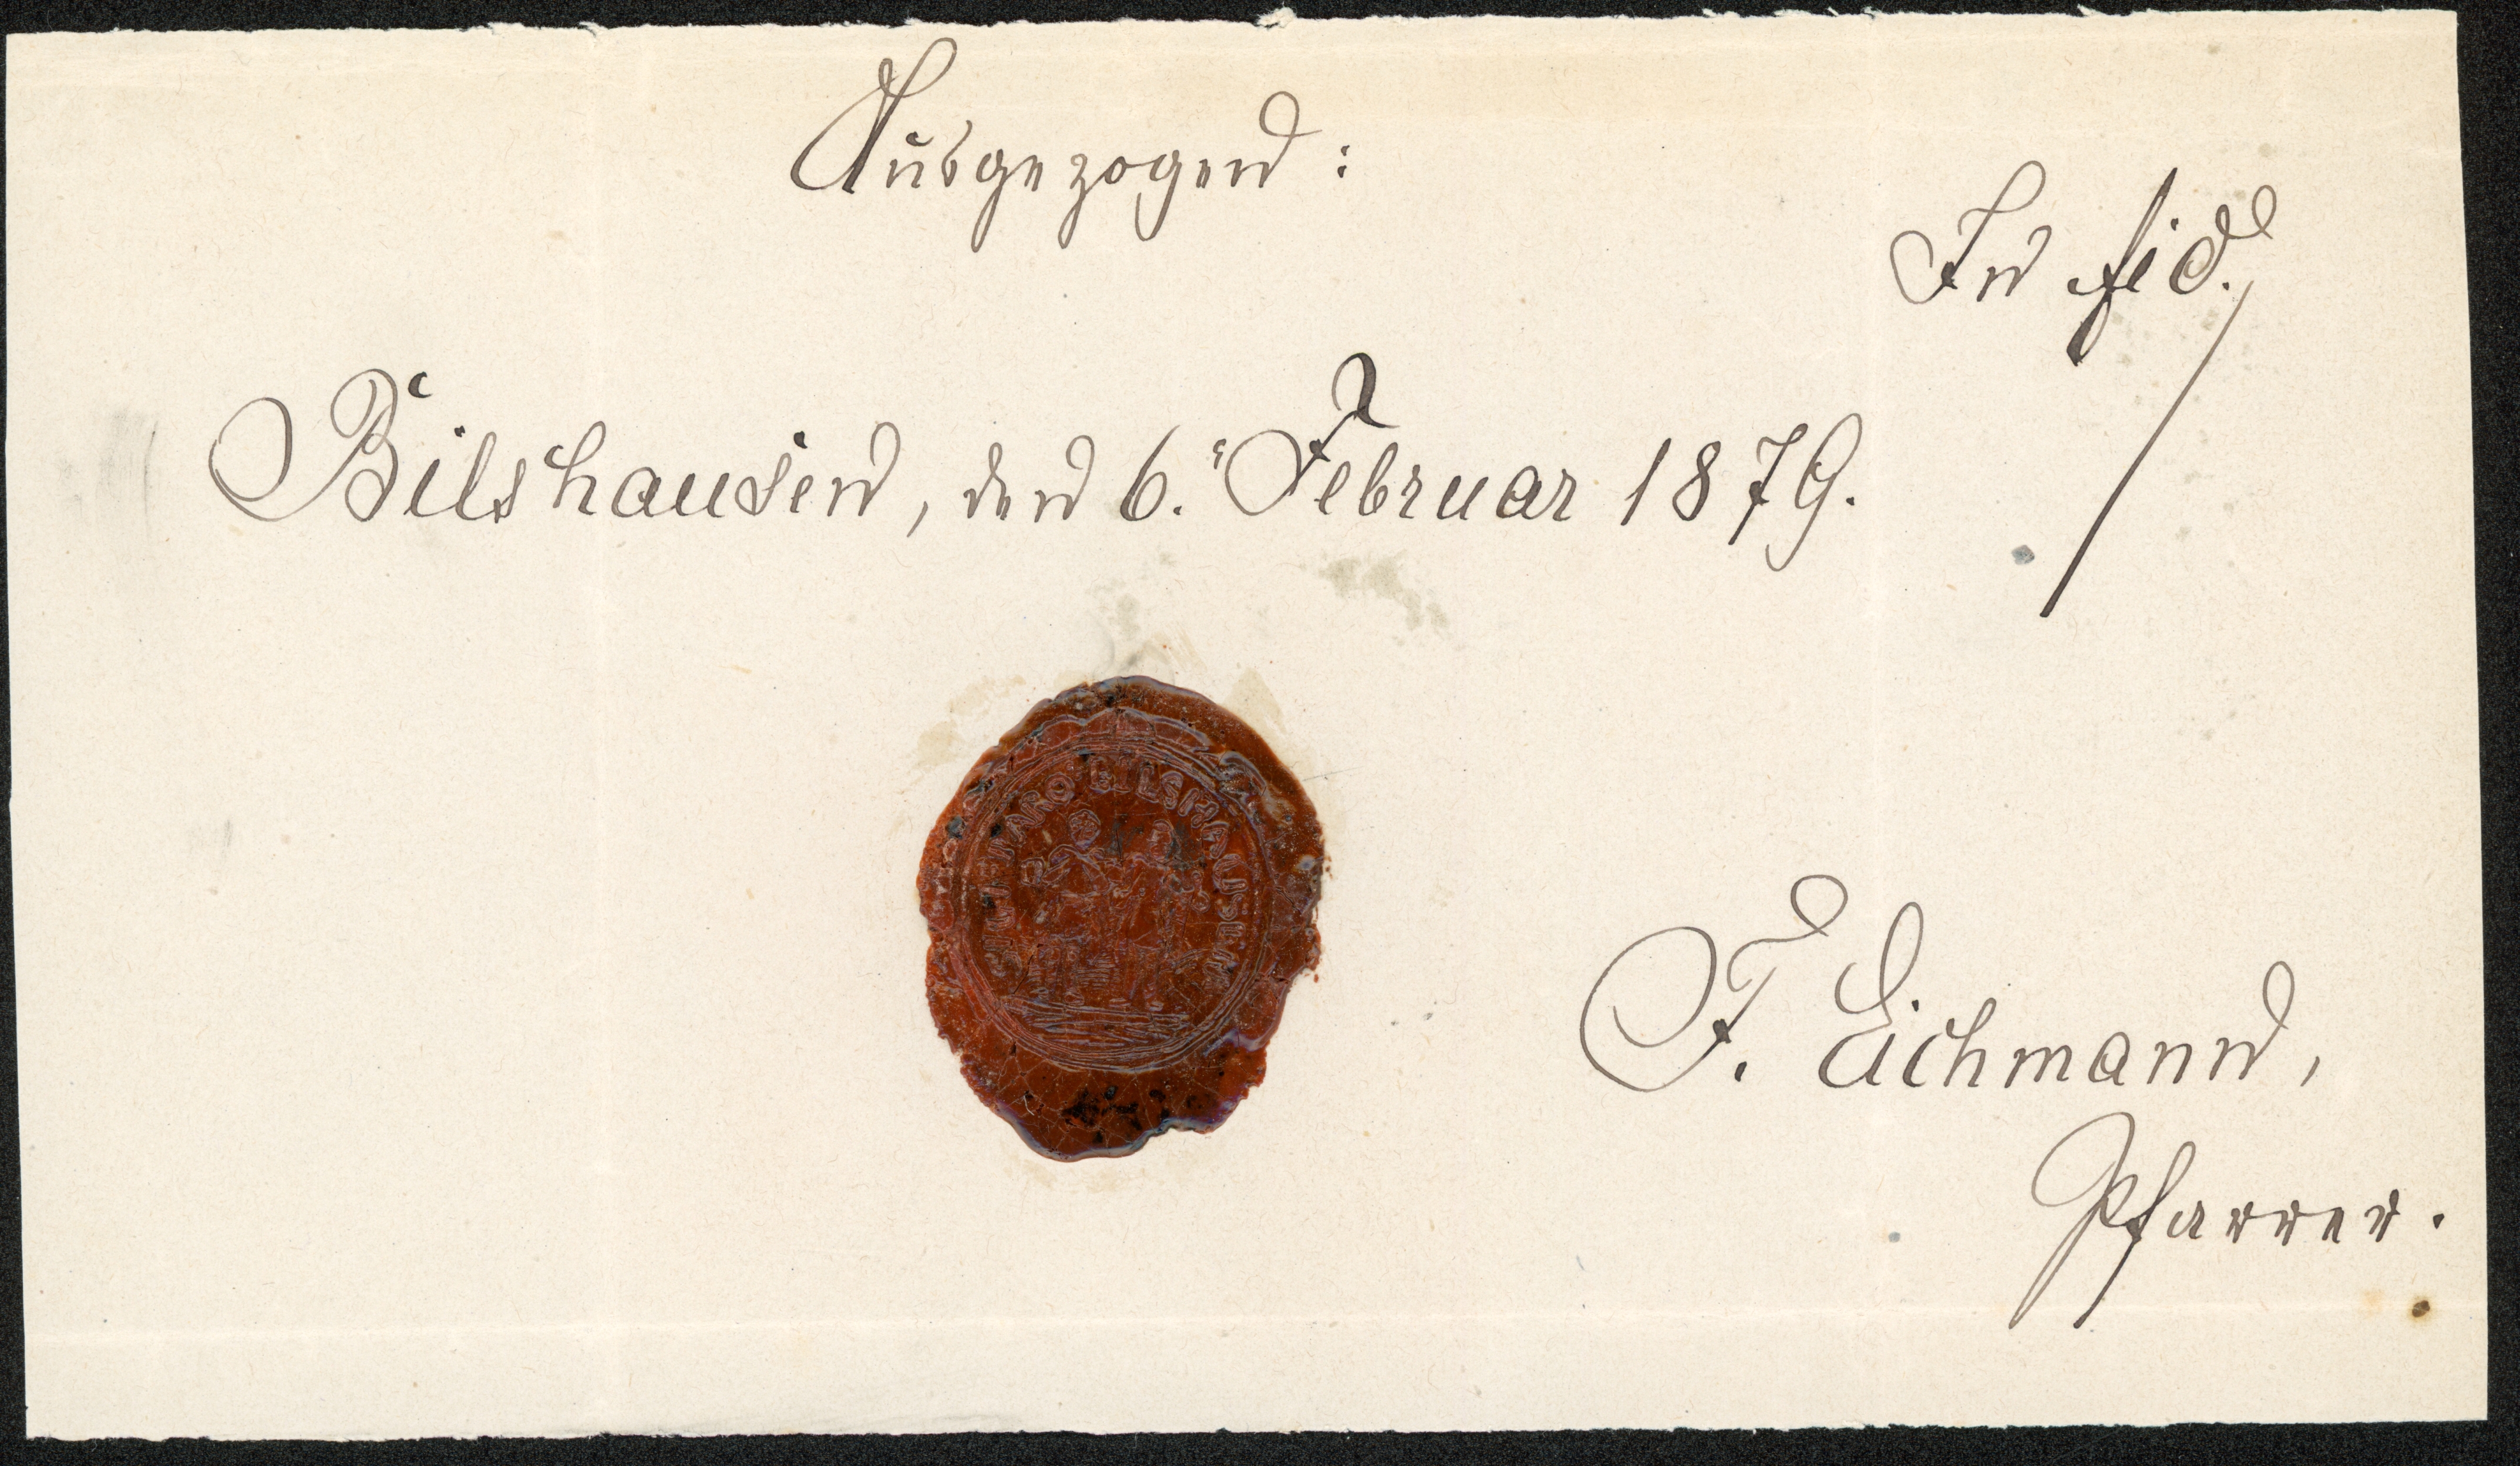 Ausgezogen:
In fid.
Bilshausen, den 6. Februar 1879.
BILSHAUSEN
F. Eichmann,
Pfarrer.